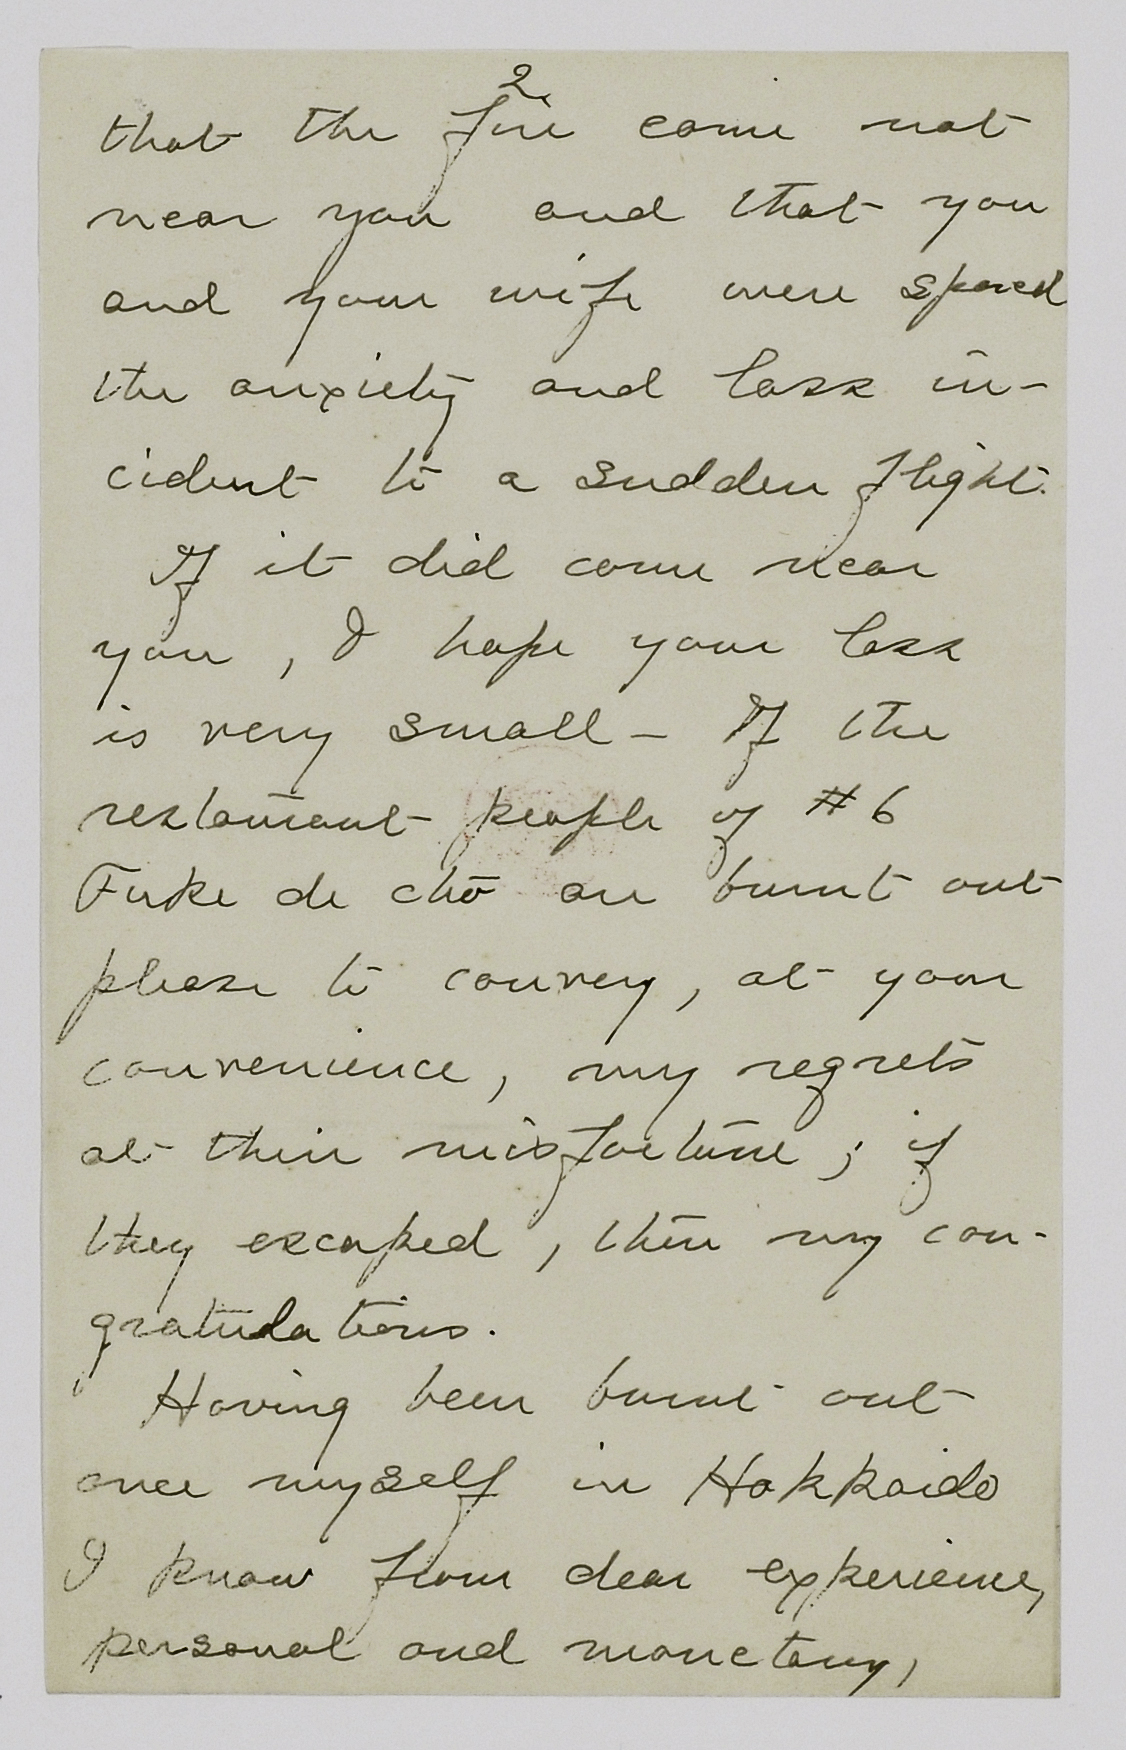 2
that the fire came not
near you and that you
and your wife were spared
the anxiety and loss in-
cident to a sudden flight.
If it did come near
you, I hope your loss
is very small – If the
restaurant people of #6
Fuke de chō are burnt out
please to convey, at your
convenience, my regrets
at their misfortune; if
they escaped, then my con-
gratulations.
Having been burnt out
once myself in Hokkaido
I know from dear experience,
personal and monetary,